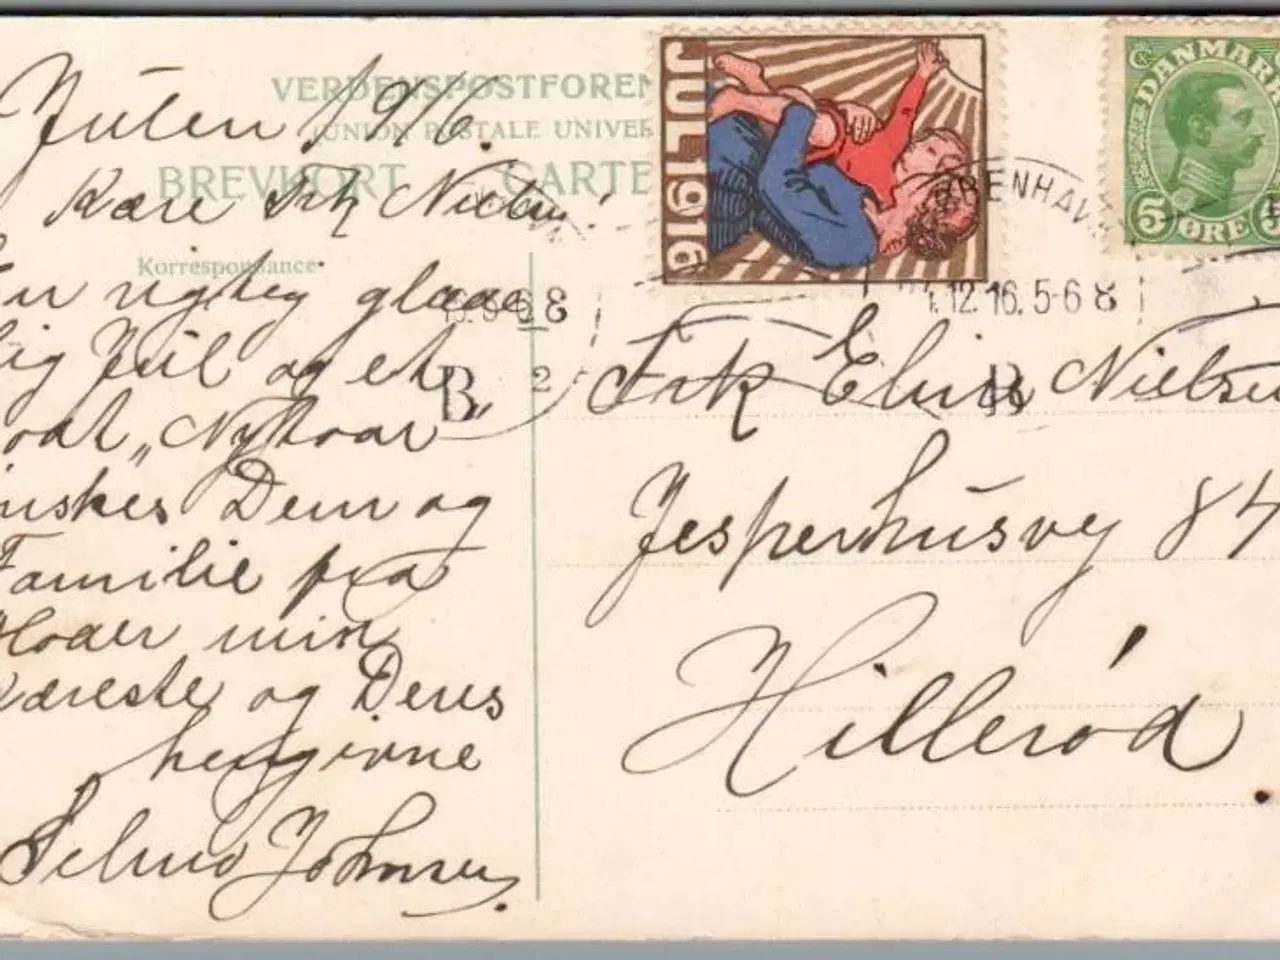 Julen 1916.
VERDENSPOSTFOREN
UNION POSTALE UNIVER
BREVKORT CARTE
Korrespondance
Kære Frk Nielsen!
En rigtig glæde
lig Jul og et
godt „Nytaar
ønskes Dem og
Familie fra
Moder min
Kæreste og Deres
hengivne
Selma Johnsen.
JUL 1916
DANMARK
5 ØRE 5
KØBENHAVN
12.16. 5-6 8
B
2
B
Frk Elina Nielsen
Jesperhusvej 84
Hillerød.